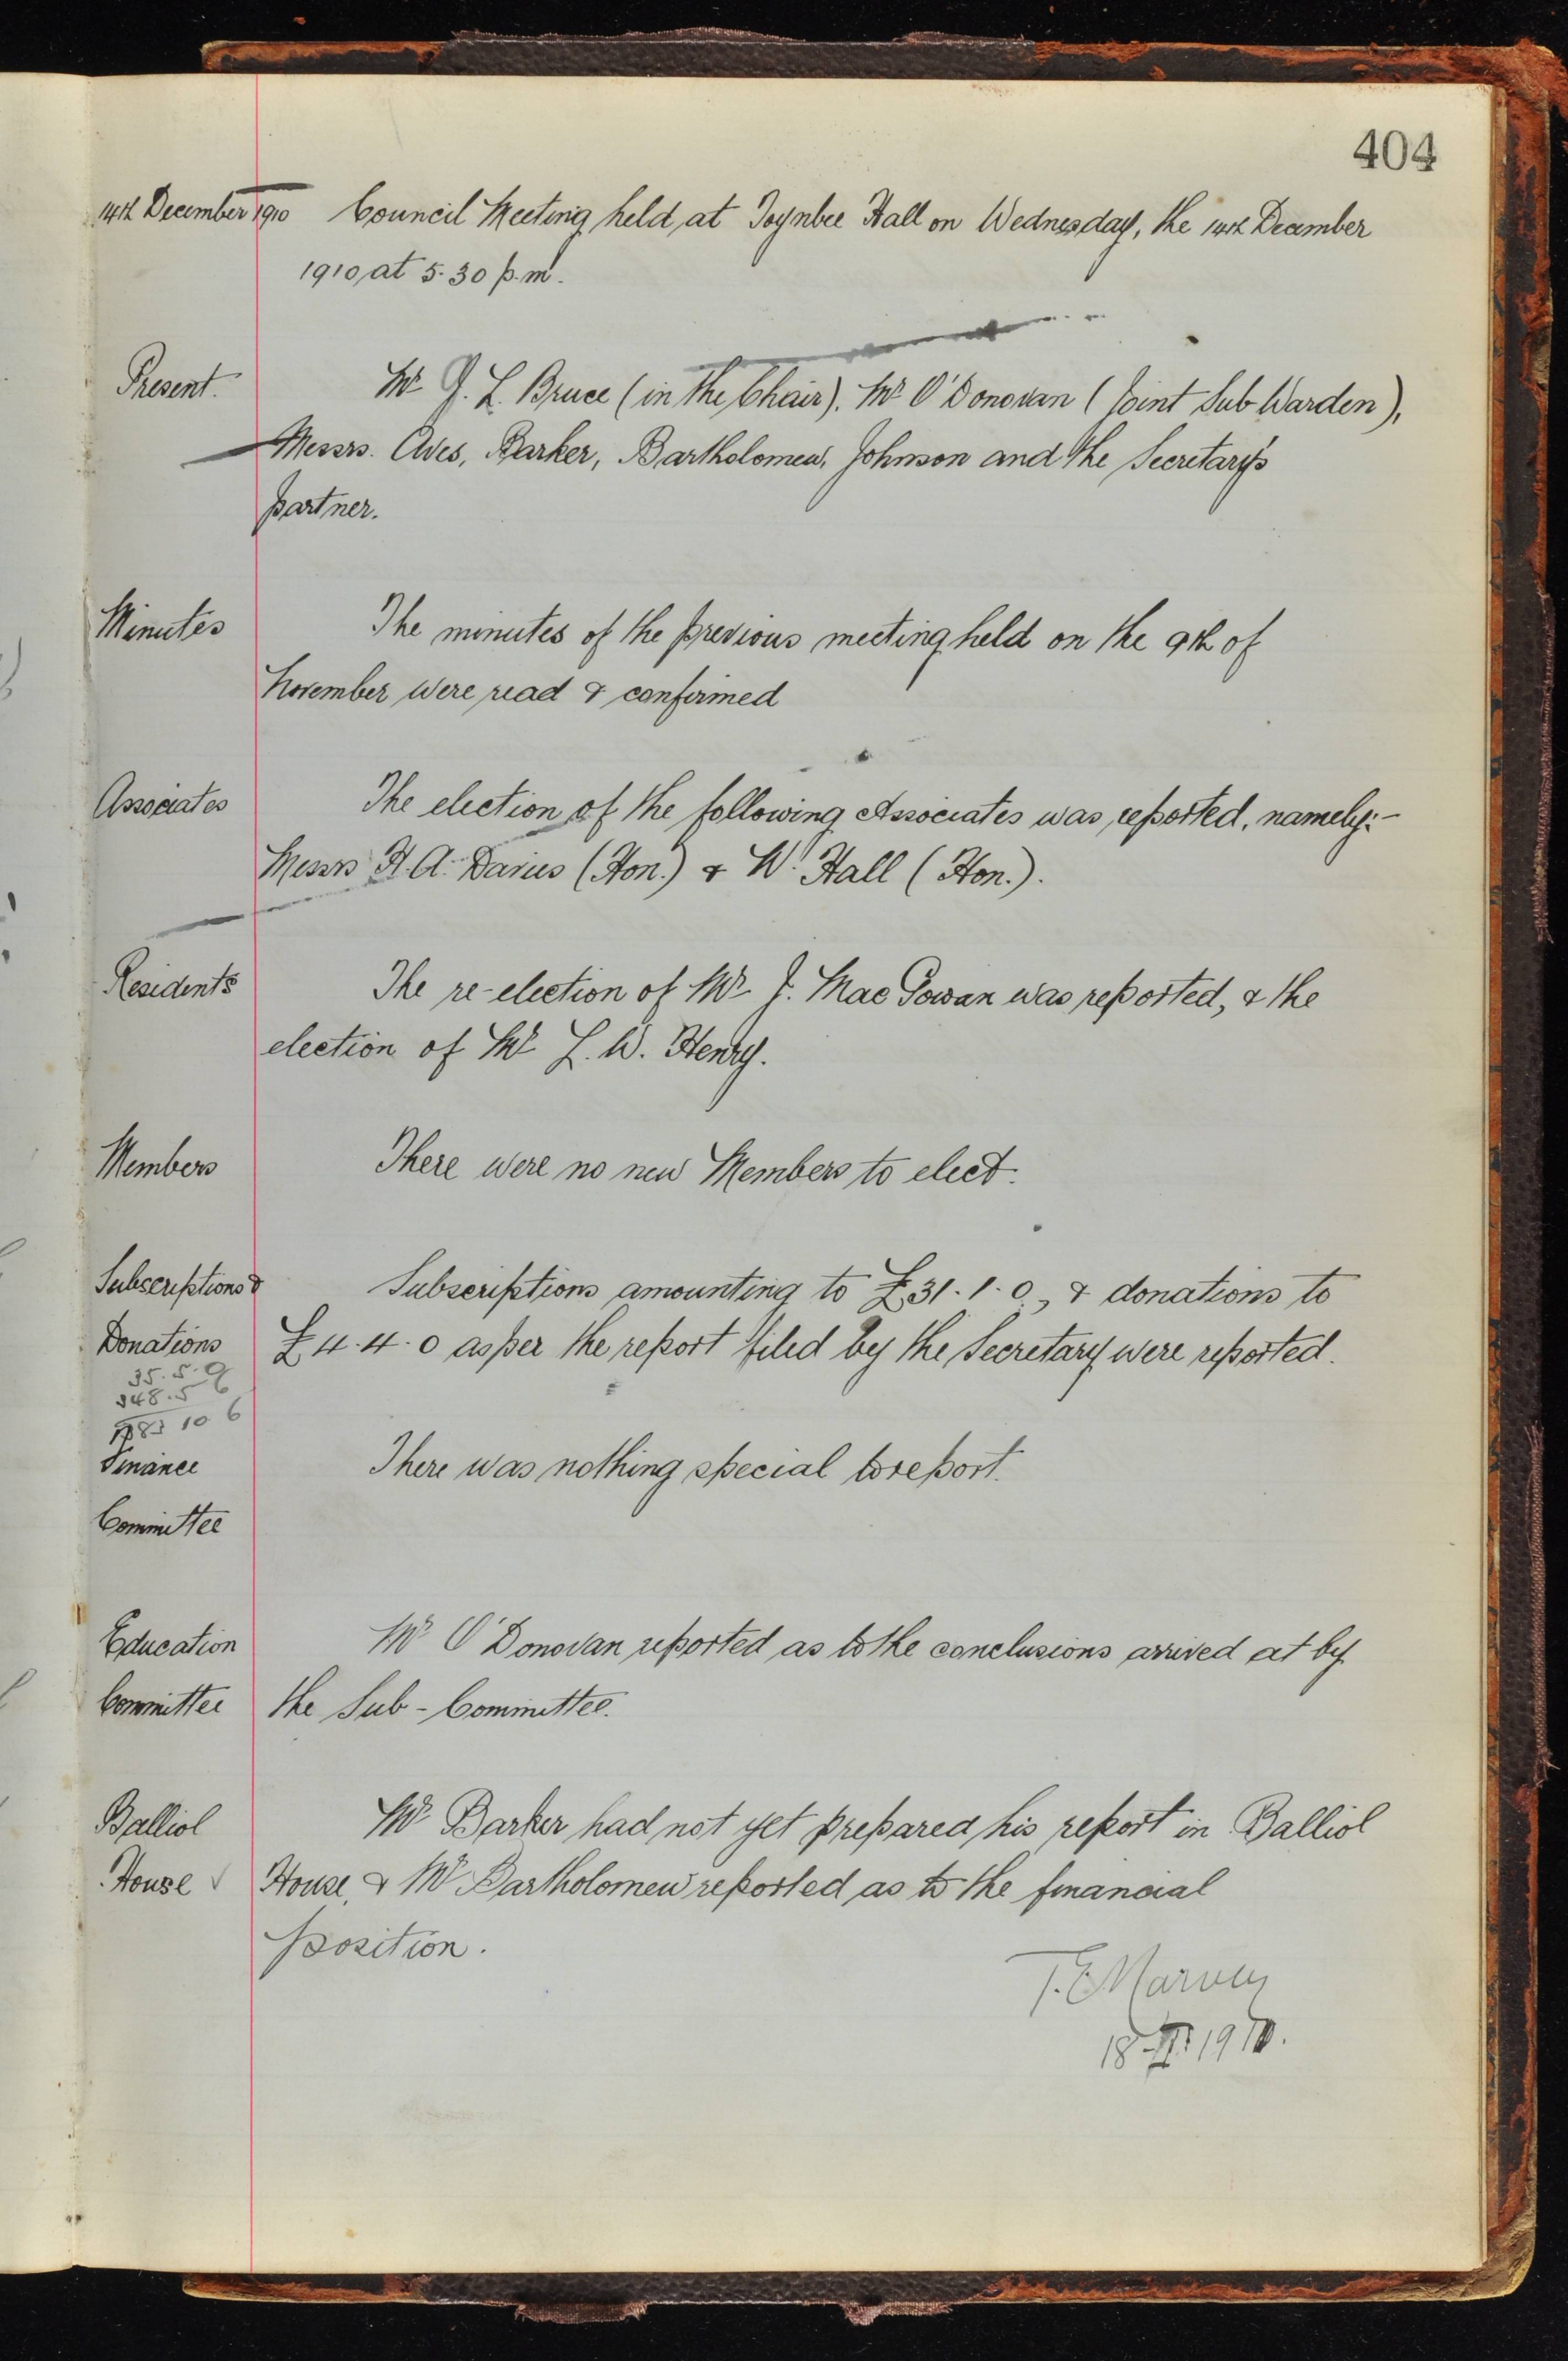 404
14th December 1910 Council Meeting held at Toynbee Hall on Wednesday, the 14th December
1910, at 5.30 p.m.
Present. Mr G. L. Bruce (in the Chair). Mr O'Donovan (Joint Sub Warden),
Messrs. Aves, Barker, Bartholomew, Johnson and the Secretary's
partner.
Minutes The minutes of the previous meeting held on the 9th of
November were read & confirmed
Associates The election of the following Associates was reported, namely:-
Messrs H. A. Davies (Hon.) & W. Hall (Hon.).
Residents The re-election of Mr J. Mac Gowan was reported, & the
election of Mr L. W. Henry.
Members There were no new Members to elect.
Subscriptions & Subscriptions amounting to £31.1.0, & donations to
Donations £4.4.0 as per the report filed by the Secretary were reported.
35.5.0
348.5 6
10 6
Finance There was nothing special to report.
Committee
Education Mr O'Donovan reported as to the conclusions arrived at by
Committee the Sub-Committee.
Balliol Mr Barker had not yet prepared his report in Balliol
House House, & Mr Bartholomew reported as to the financial
position.
18 19